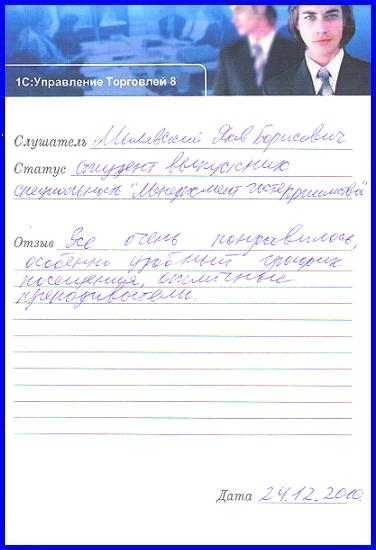 1С:Управление Торговлей 8
Слушатель Милявский Яков Борисович
Статус студент выпускник
специальность "Менеджмент гостеприимства"
Отзыв Все очень понравилось,
особенно удобный график
посещения, отличные
преподаватели.
Дата 24.12.2010.